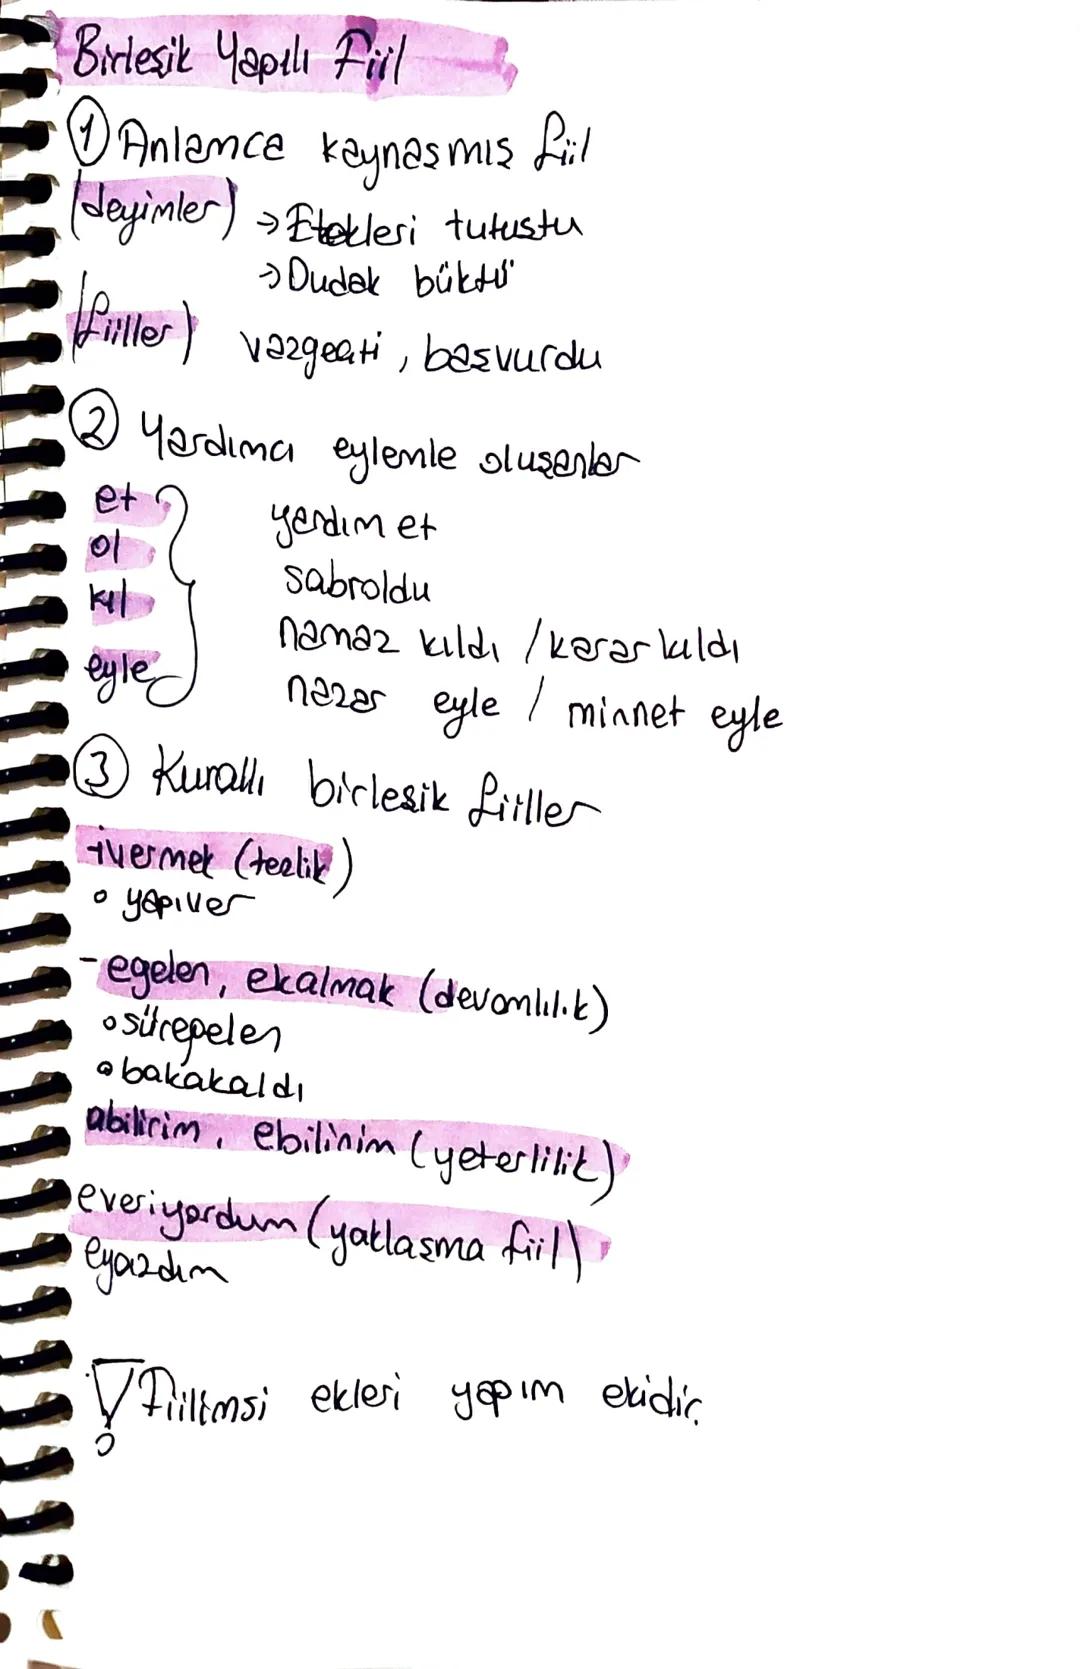 Birleşik Yapılı Fiil
① Anlamca kaynaşmış fiil
(deyimler) → Etekleri tutuştu
→ Dudak büktü
(fiiller) vazgeçti, başvurdu
② Yardımcı eylemle oluşanlar
et yardım et
ol sabroldu
kıl namaz kıldı / karar kıldı
eyle nazar eyle / minnet eyle
③ Kurallı birleşik fiiller
-ivermek (tezlik)
° yapıver
-egelen, ekalmak (devamlılık)
° süregelen
° bakakaldı
abilirim, ebilirim (yeterlilik)
everiyordum (yaklaşma fiil)
eyazdım
Fiilimsi ekleri yapım ekidir.